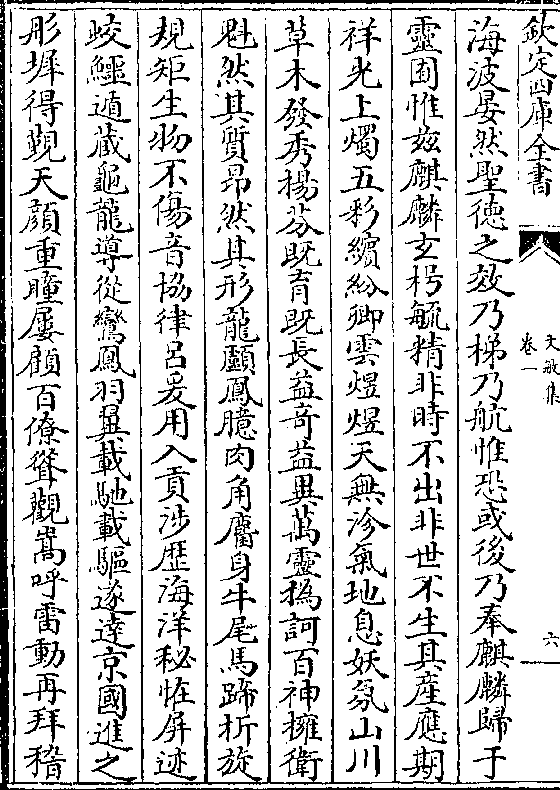 欽定四庫全書
文敏集
卷一
六
海波晏然聖德之效乃梯乃航惟恐或後乃奉麒麟歸于
靈囿惟玆麒麟玄枵毓精非時不出非世不生其産應期
祥光上燭五彩繽紛卿雲煜煜天無沴氣地息妖氛山川
草木發秀揚芬既育既長益奇益異萬靈撝訶百神擁衛
魁然其質昂然其形龍顱鳳臆肉角麕身牛尾馬蹄折旋
規矩生物不傷音協律吕爰用入貢涉歴海洋秘怪屏迹
蛟鱷遁藏龜龍導從鸞鳳羽翼載馳載驅遂逹京國進之
彤墀得覲天顔重瞳屢顧百僚聳觀嵩呼雷動再拜稽